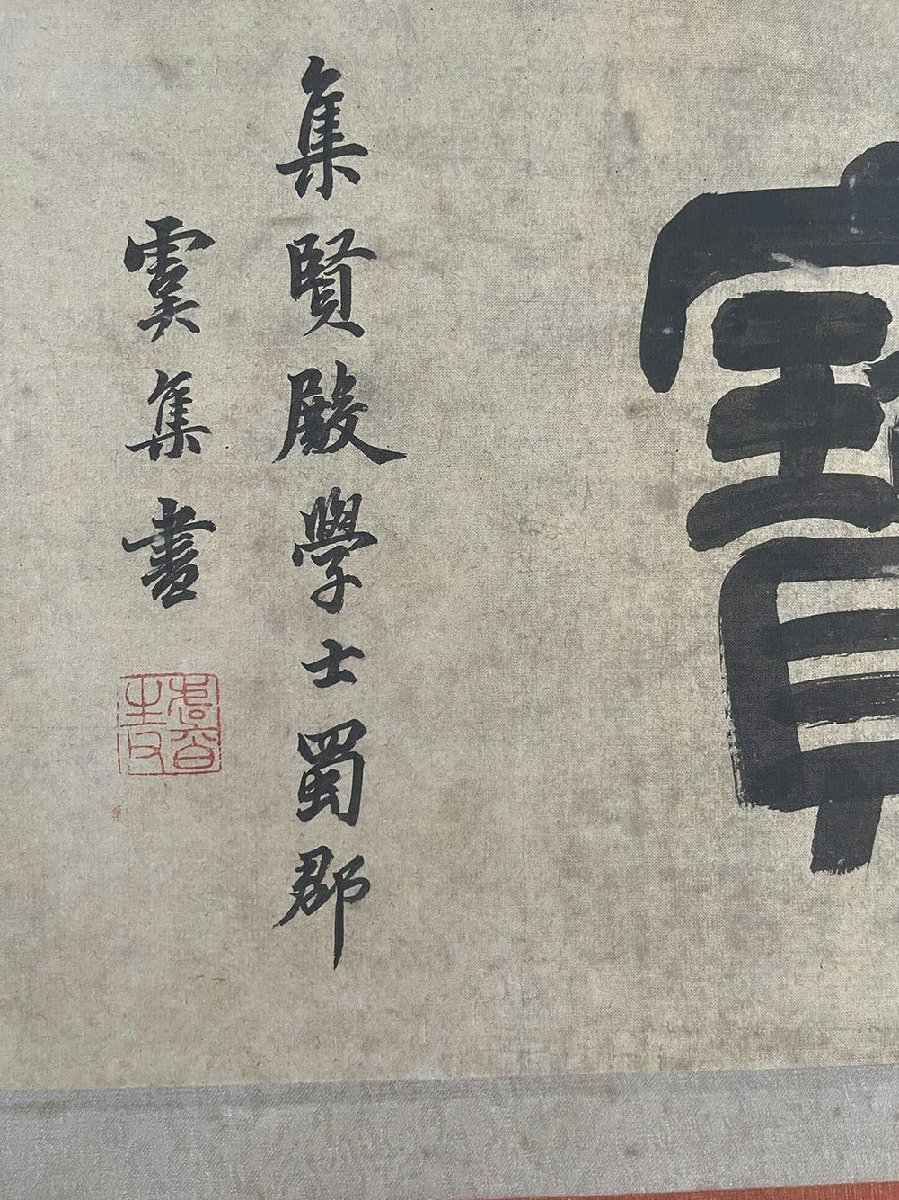 寶
集賢殿學士蜀郡
虞集書